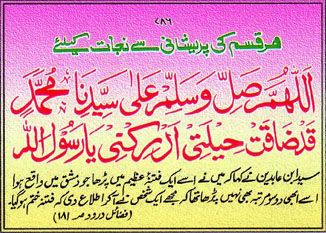 ۷۸۶
ھر قسم کی پریشانی سے نجات کیلئے
اَللّٰهُمَّ صَلِّ وَسَلِّمْ عَلٰی سَیِّدِنَا مُحَمَّدٍ
قَدْ ضَاقَتْ حِیْلَتِیْ اَدْرِکْنِیْ یَا رَسُوْلَ اللّٰهِ
سید ابن عابدین نے کہا کہ میں نے اسے ایک فتنۂ عظیم میں پڑھا جو دمشق میں واقع ہوا
اسے ابھی دو سو مرتبہ بھی نہیں پڑھا تھا کہ مجھے ایک شخص نے آکر اطلاع دی کہ فتنہ ختم ہوگیا۔
(فضائل درود صـ ۱۸۱)